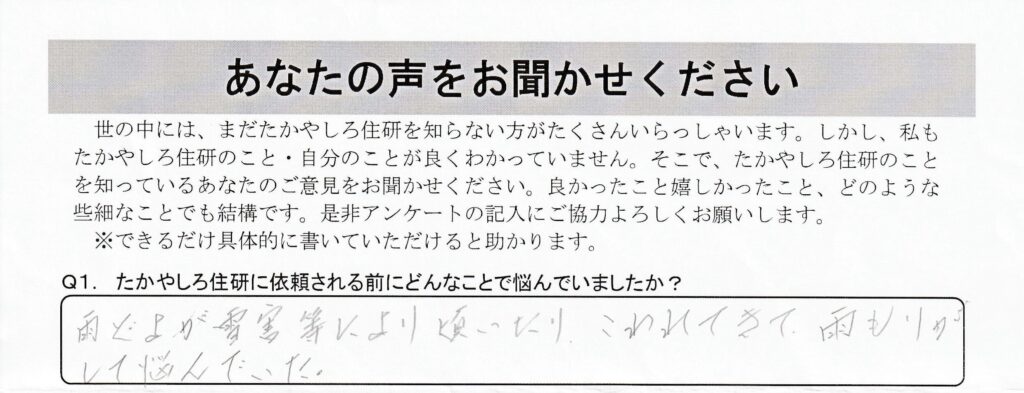 あなたの声をお聞かせください
世の中には、まだたかやしろ住研を知らない方がたくさんいらっしゃいます。しかし、私も
たかやしろ住研のこと・自分のことが良くわかっていません。そこで、たかやしろ住研のこと
を知っているあなたのご意見をお聞かせください。良かったこと嬉しかったこと、どのような
些細なことでも結構です。是非アンケートの記入にご協力よろしくお願いします。
※できるだけ具体的に書いていただけると助かります。
Q1. たかやしろ住研に依頼される前にどんなことで悩んでいましたか？
雨どよが雪害等により傾いたり、これれてきて、雨もりが
して悩んでいた。